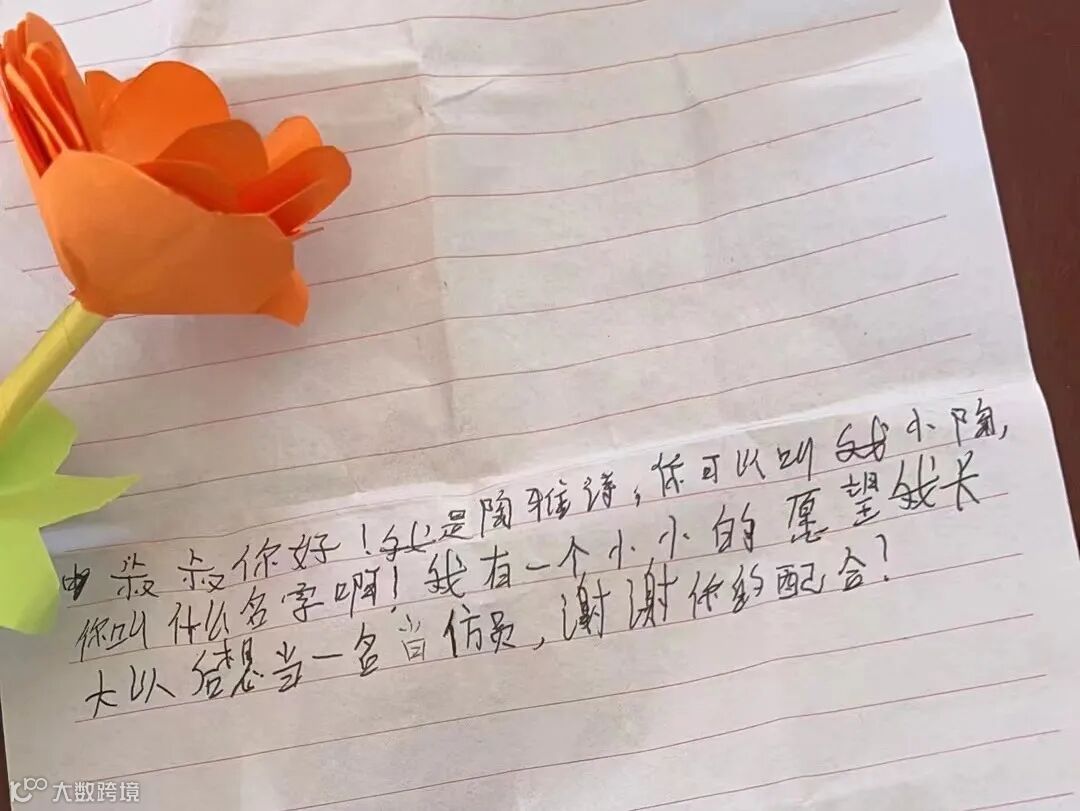 叔叔你好！我是陶雅诗，你可以叫我小陶，
你叫什么名字啊！我有一个小小的愿望我长
大以后想当一名当仿员，谢谢你的配合？
大数跨境